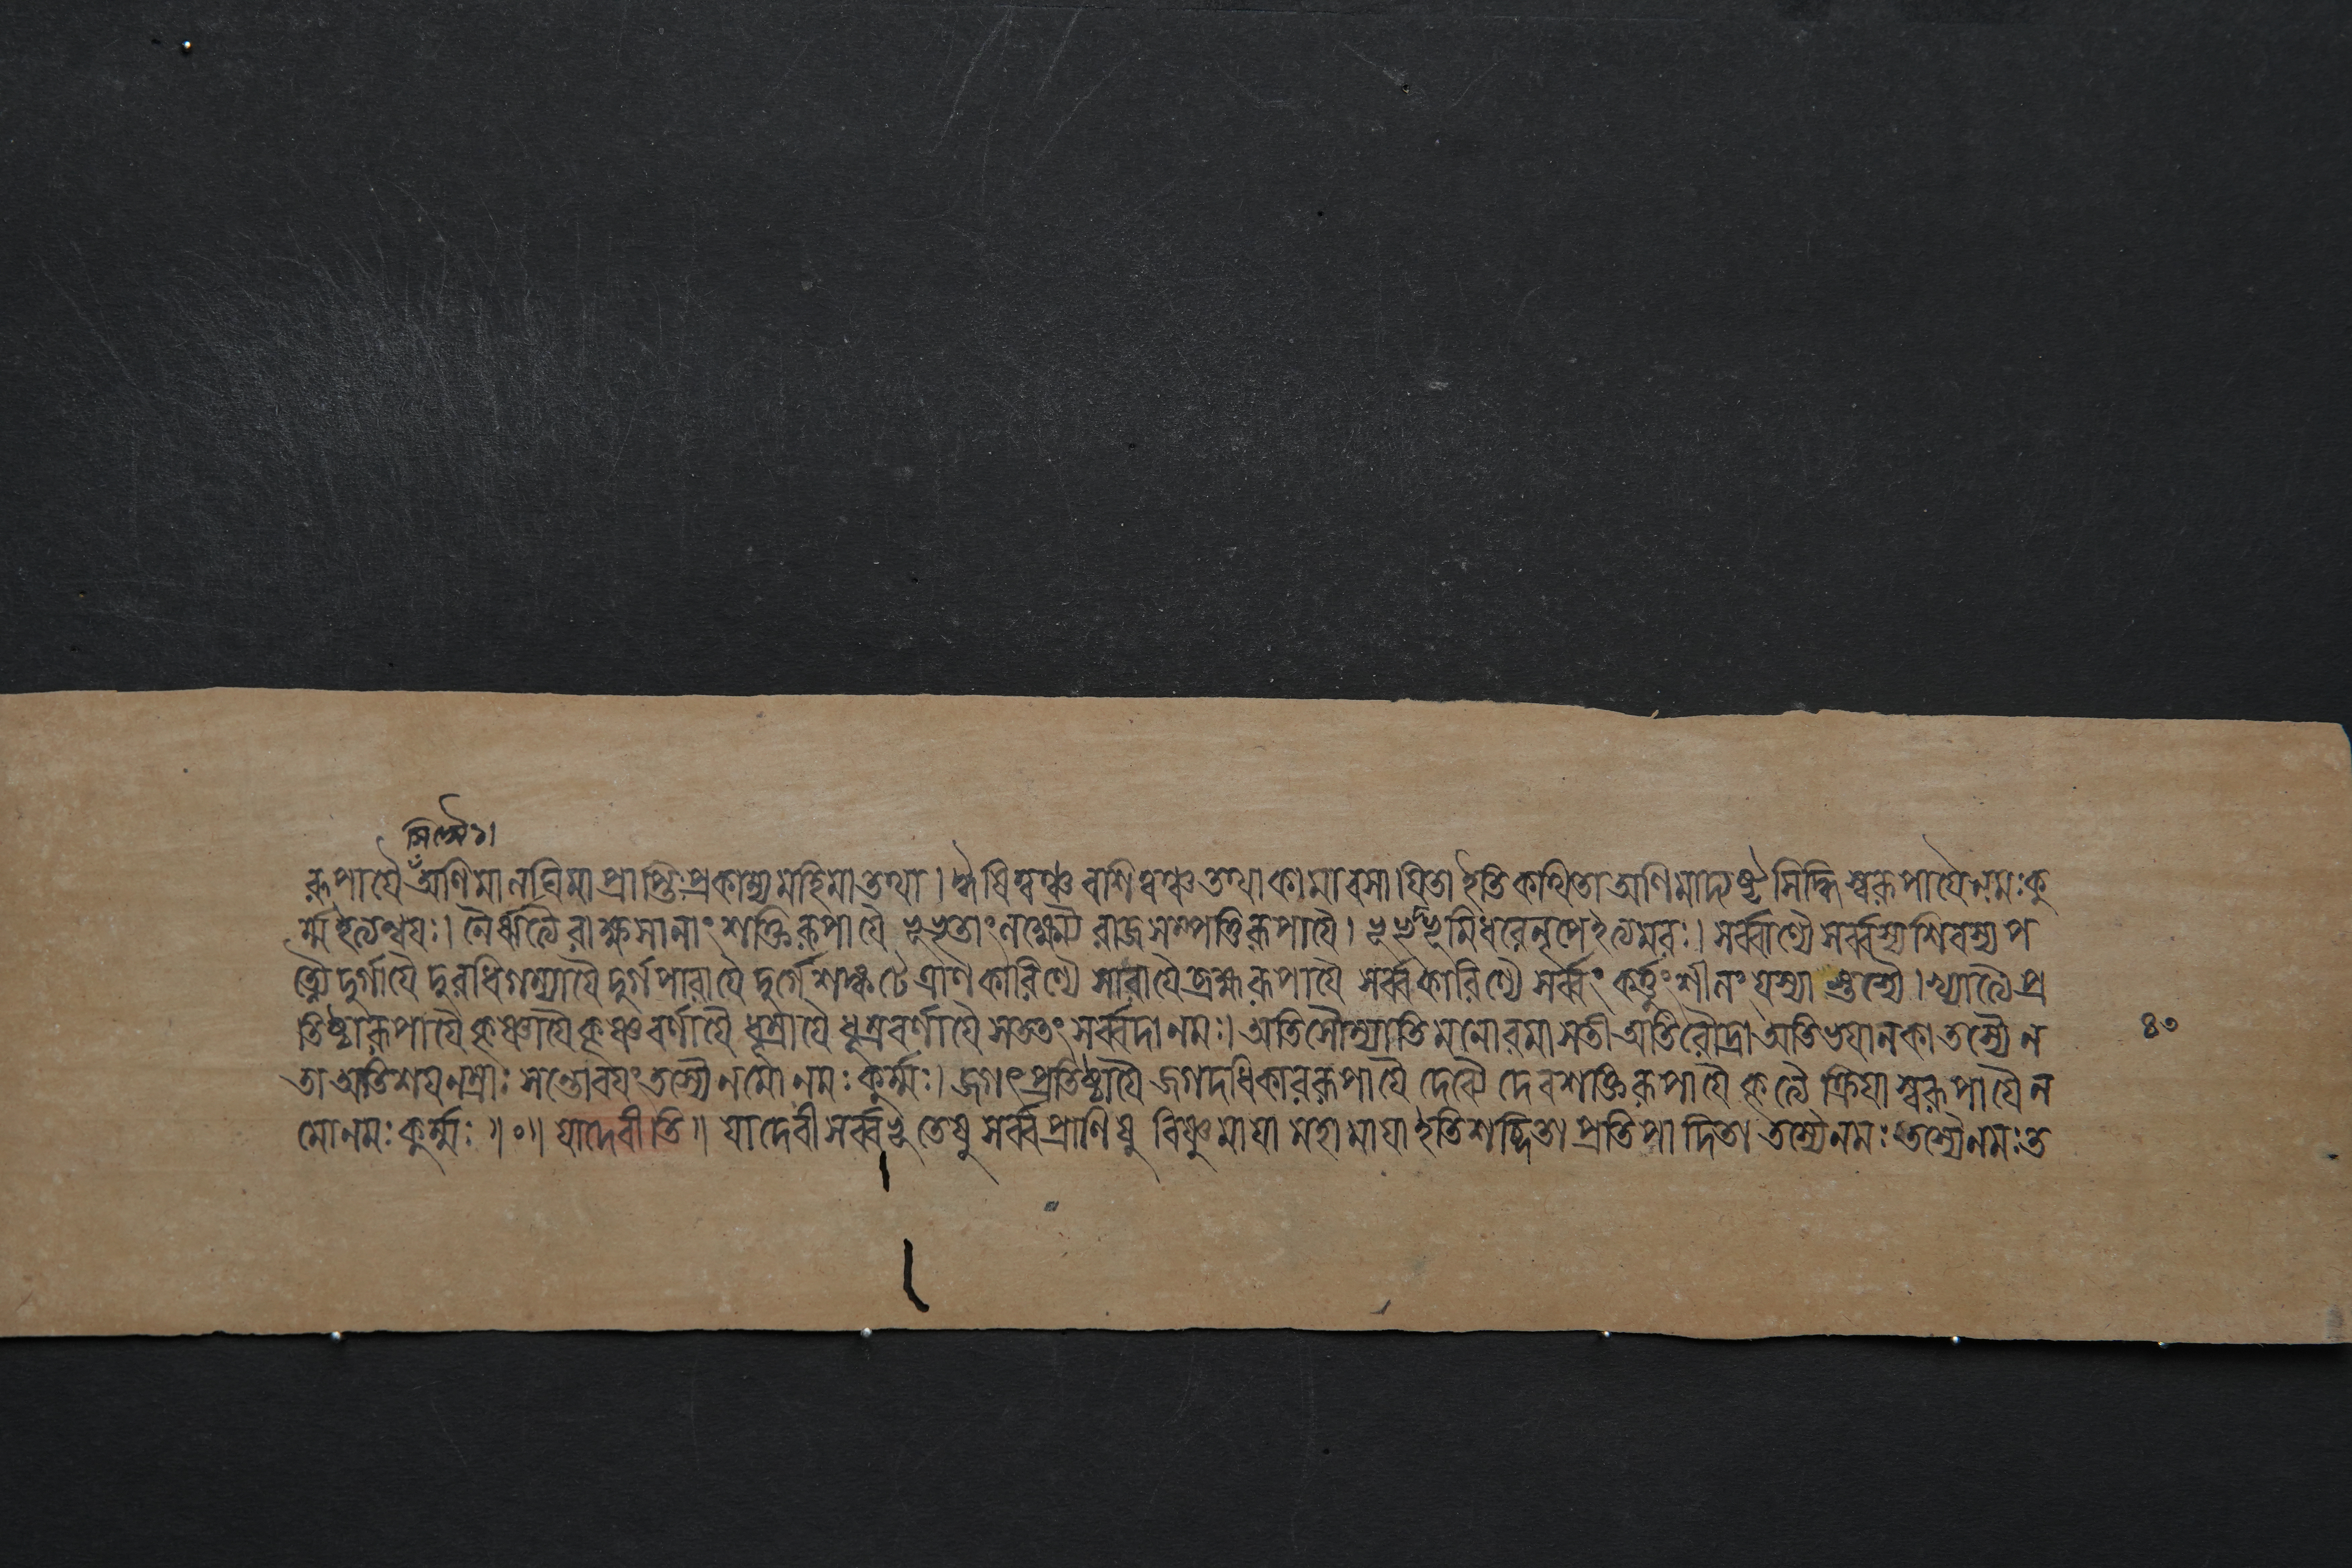 সিদ্ধ্যৈ১।
রূপায়ৈ অণিমা লঘিমা প্রাপ্তিঃ প্রকাম্য মহিমা তথা। ঈষিত্বঞ্চ বশিত্বঞ্চ তথা কামাবসায়িতা ইতি কথিতা অণিমাদ্যষ্ট সিদ্ধি স্বরূপায়ৈ নমঃ কু
র্ম্ম ইত্যন্বয়ঃ। নৈর্ঋত্যৈ রাক্ষসানাং শক্তিরূপায়ৈ ভূভৃতাং লক্ষ্ম্যৈ রাজসম্পত্তিরূপায়ৈ। ভূভৃদ্ভূমিধরে নৃপে ইত্যমরঃ। সর্ব্বাণ্যৈ সর্ব্বস্য শিবস্য প
ত্ন্যৈ দুর্গায়ৈ দুরধিগম্যায়ৈ দুর্গপারায়ৈ দুর্গে শঙ্কটে ত্রাণকারিণ্যৈ সারায়ৈ ব্রহ্মরূপায়ৈ সর্ব্বকারিণ্যৈ সর্ব্বং কর্ত্তুং শীলং যস্যা স্তস্যৈ। খ্যাত্যৈ প্র
তিষ্ঠারূপায়ৈ কৃষ্ণায়ৈ কৃষ্ণবর্ণায়ৈ ধূম্রায়ৈ ধূম্রবর্ণায়ৈ সততং সর্ব্বদা নমঃ। অতিসৌম্যাতি মনোরমা সতী অতিরৌদ্রা অতিভয়ানকা তস্যৈ ন
৪০
তা অতিশয়নম্রাঃ সন্তোবয়ং তস্যৈ নমো নমঃ কুর্ম্মঃ। জগৎপ্রতিষ্ঠায়ৈ জগদধিকাররূপায়ৈ দেব্যৈ দেবশক্তিরূপায়ৈ কৃত্যৈ ক্রিয়াস্বরূপায়ৈ ন
মোনমঃ কুর্ম্মঃ ॥০॥ যাদেবীতি॥ যা দেবী সর্ব্বভূতেষু সর্ব্বপ্রাণিষু বিষ্ণুমায়া মহামায়া ইতি শব্দিতা প্রতিপাদিতা তস্যৈ নমঃ তস্যৈ নমঃ ত